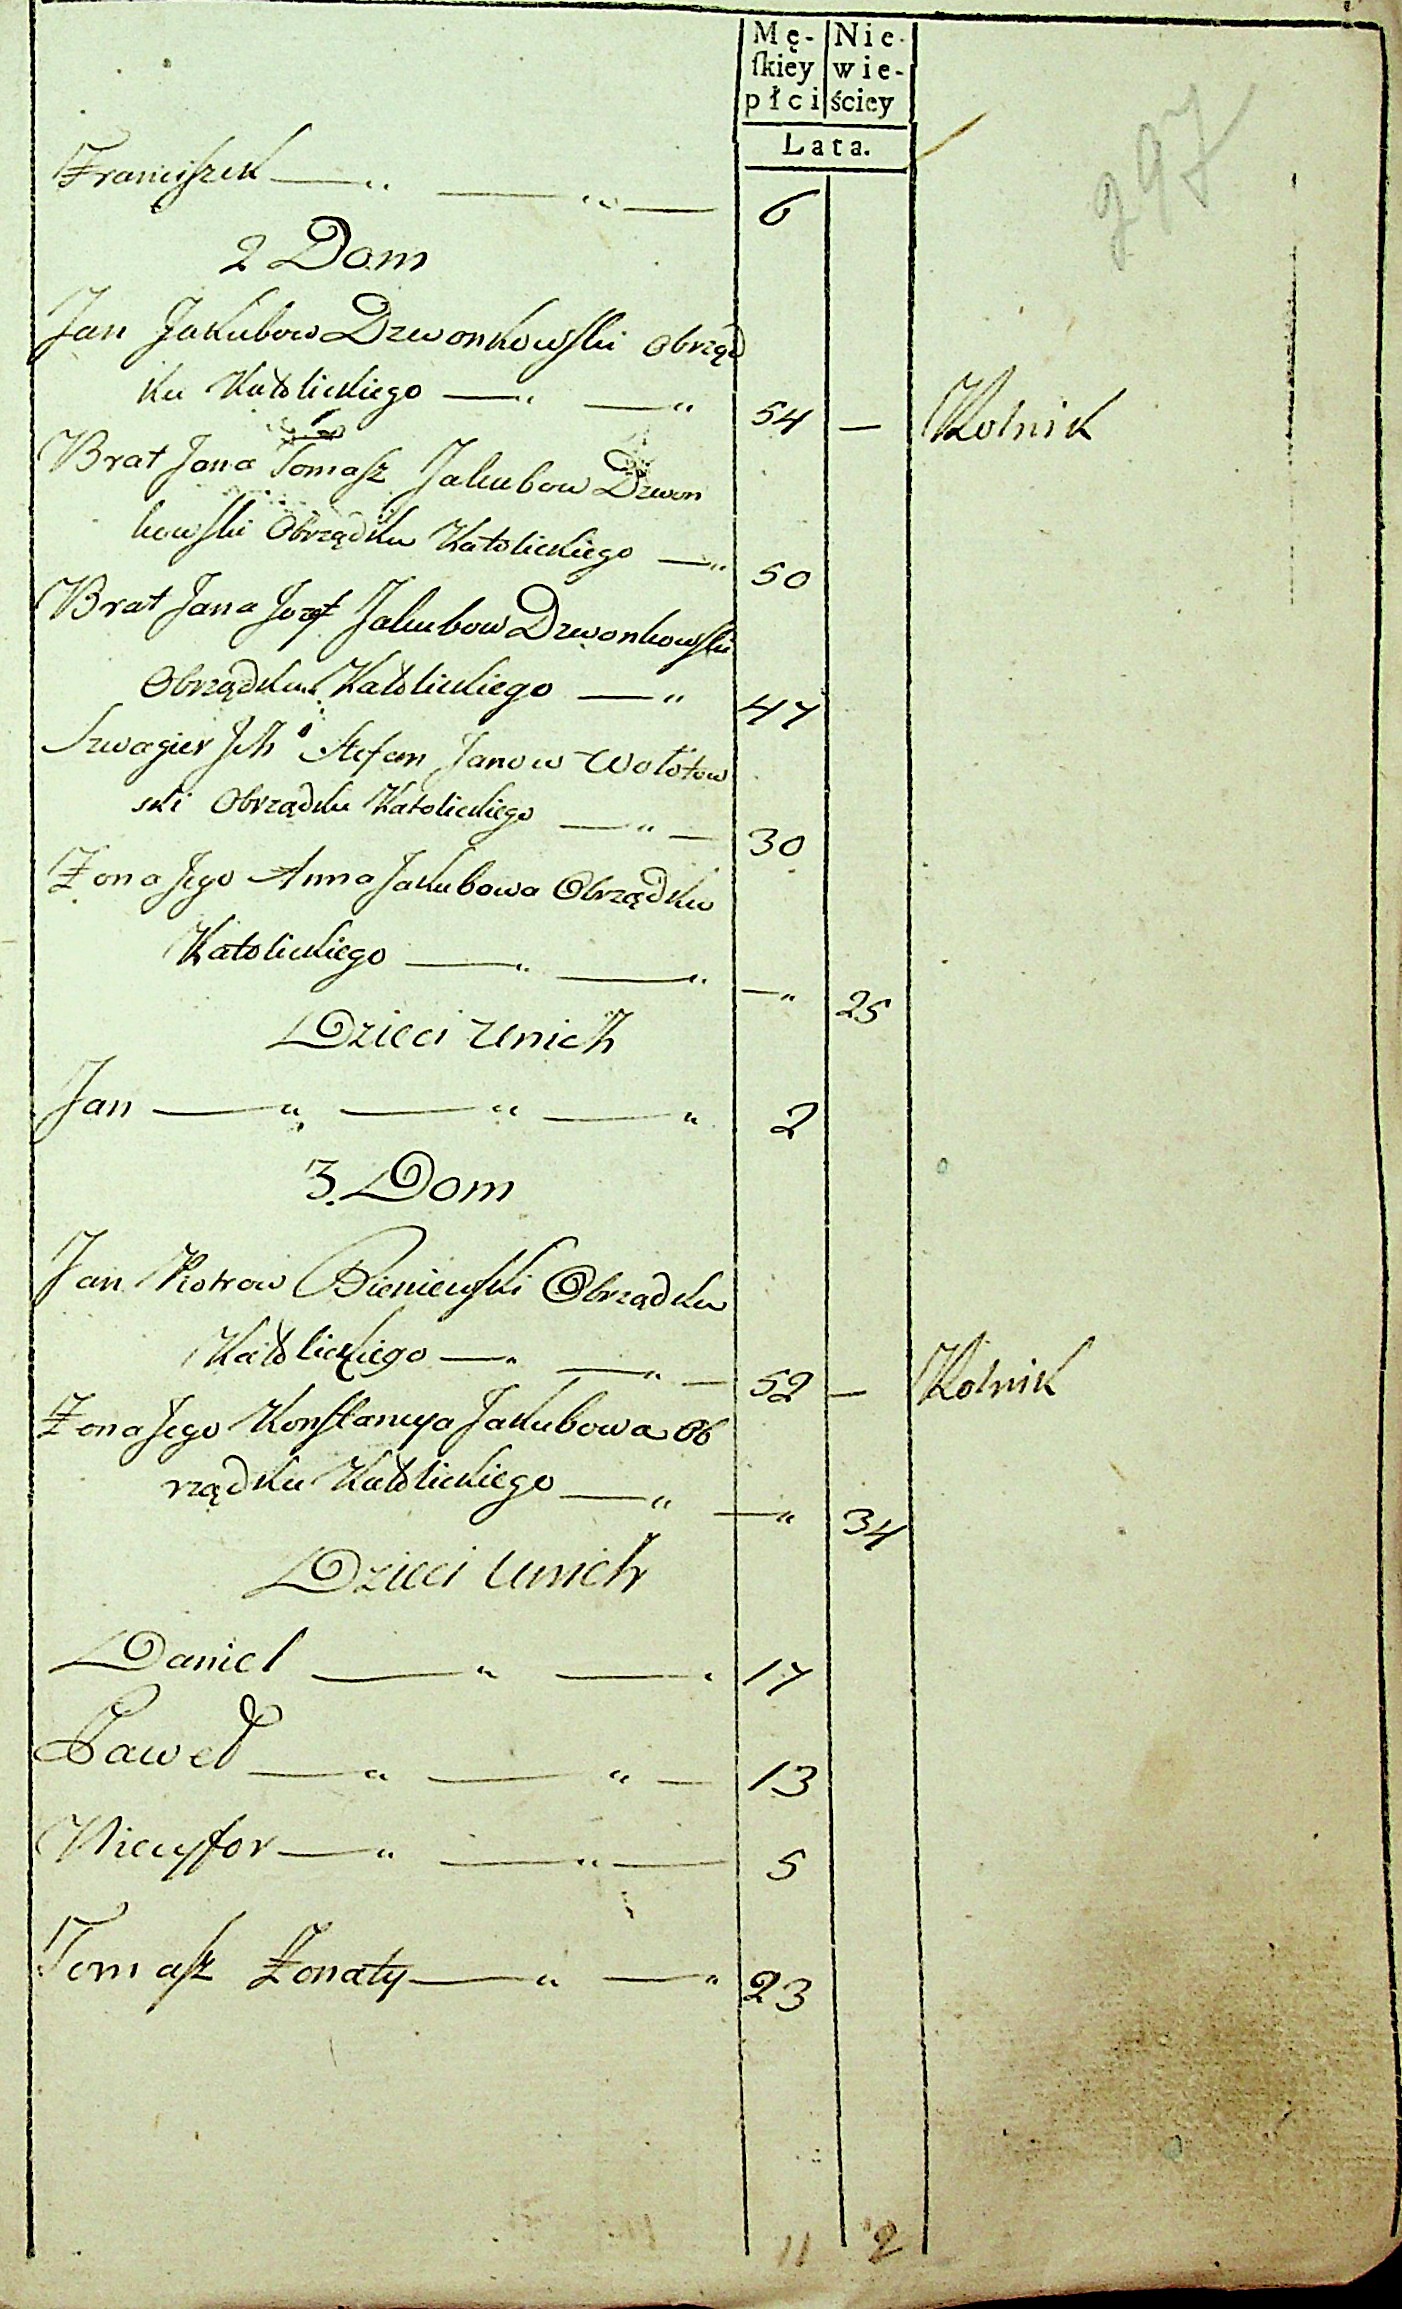 Mę- Nie-
ſkiey wie-
płci ściey
Lata.
297
Franciszek — " — " — 6
2 Dom
Jan Jakubow Dzwonkowski obrząd
ku Katolickiego — " — " 54 — Rolnik
Brat Jana Tomasz Jakubow Dzwon
kowski Obrządku Katolickiego — " 50
Brat Jana Jozef Jakubow Dzwonkowski
Obrządku Katolickiego — " 47
Szwagier Jch Stefan Janow Wołotow
ski Obrządku Katolickiego — " — 30
Zona Jego Anna Jakubowa Obrządku
Katolickiego — " — " — " 25
Dzieci unich
Jan — " — " — " 2
3. Dom
Jan Piotrow Bieniewski Obrządku
Katolickiego — " — " — 52 — Rolnik
Zona Jego Konstancya Jakubowa Ob
rządku Katolickiego — " — " 34
Dzieci unich
Daniel — " — " 17
Paweł — " — " — 13
Nicyfor — " — " — 5
Tomasz Zonaty — " — " 23
11 2